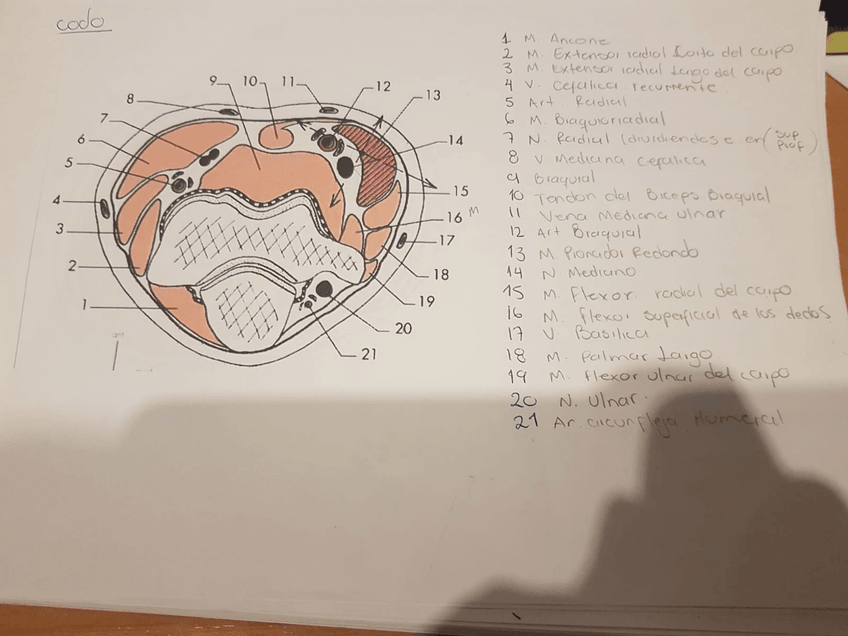 codo
1 M. Ancone
2 M. Extensor radial Corto del carpo
3 M. Extensor radial Largo del carpo
4 V. Cefalica recurrente
5 Art. Radial
6 M. Braquioradial
7 N. Radial (dividiendose en (sup Prof)
8 V Mediana cefalica
9 Braquial
10 Tendon del Biceps Braquial
11 Vena Mediana ulnar
12 Art Braquial
13 M. Pronador Redondo
14 N. Mediano
15 M. Flexor radial del carpo
16 M. flexor superficial de los dedos
17 V Basilica
18 M. Palmar Largo
19 M. flexor ulnar del carpo
20 N. Ulnar.
21 Ar. circunfleja Humeral
9
10
11
12
13
8
7
14
6
5
15
4
16 M
3
17
2
18
19
1
20
21